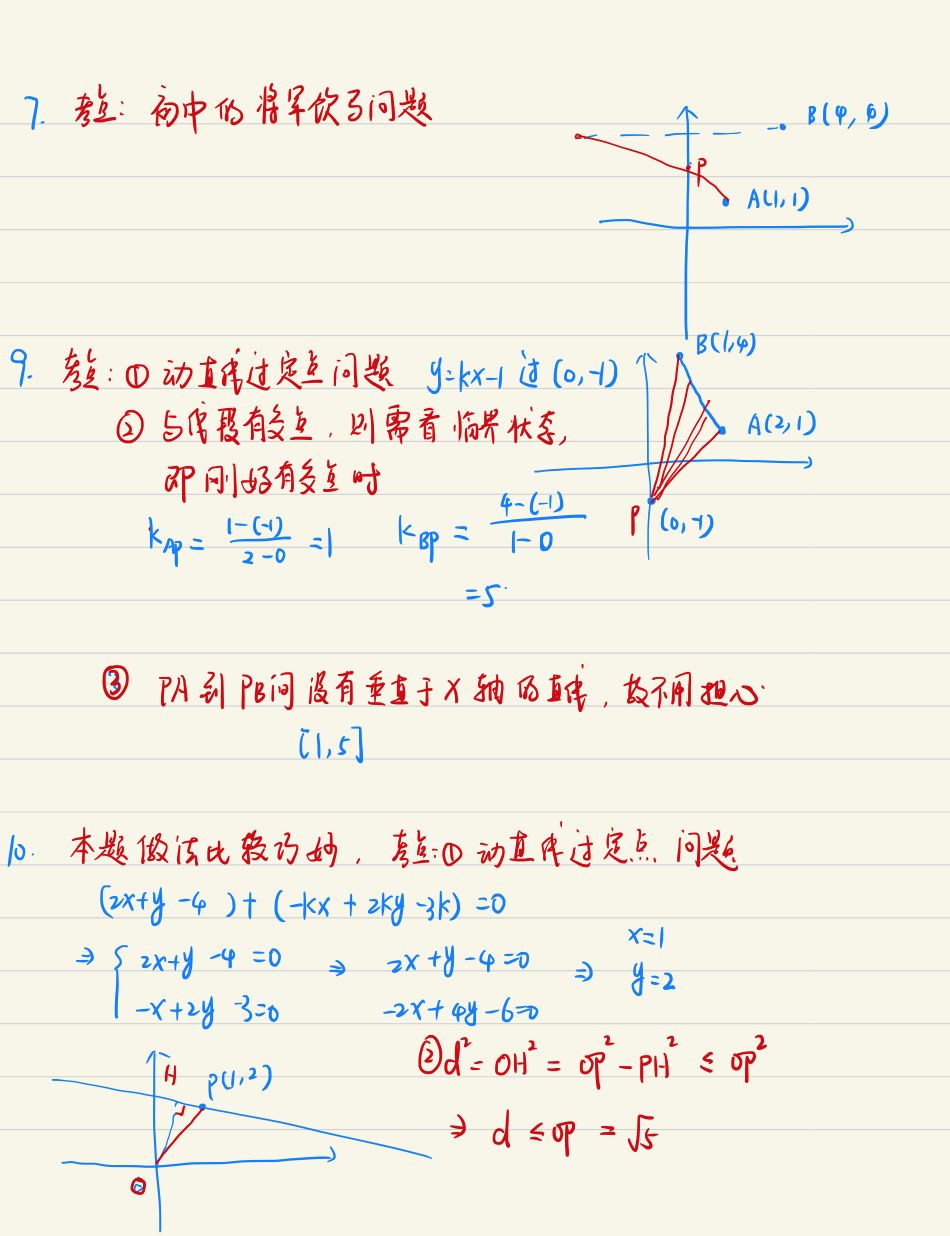 7. 考点：初中的将军饮马问题
B(4, 6)
P
A(1,1)
9. 考点：① 动直线过定点问题 y=kx-1 过 (0,-1)
B(1,4)
② 与线段有交点，则需看临界状态，
A(2,1)
即刚好有交点时
P (0,-1)
k_AP = \frac{1-(-1)}{2-0} = 1 k_BP = \frac{4-(-1)}{1-0}
=5
③ PA到PB间没有垂直于x轴的直线，故不用担心.
[1,5]
10. 本题做法比较巧妙，考点:① 动直线过定点 问题
(2x+y-4 )+(-kx+2ky-3k)=0
⇒ { 2x+y-4=0 ⇒ 2x+y-4=0 ⇒ x=1
-x+2y-3=0 -2x+4y-6=0 y=2
H P(1,2)
O
② d²=OH²=OP²-PH² ≤ OP²
⇒ d ≤ OP = √5